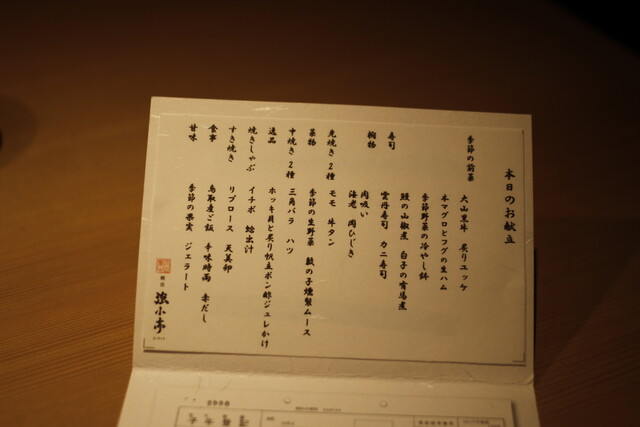 本日のお献立
季節の前菜
大山黒牛 炙りユッケ
本マグロとフグの生ハム
季節野菜の冷やし鉢
鰻の山椒煮 白子の有馬煮
寿司 雲丹寿司 カニ寿司
椀物 肉吸い
海老 肉ひじき
先焼き2種 モモ 牛タン
菜物 季節の生野菜 数の子燻製ムース
中焼き2種 三角バラ ハツ
逸品 ホッキ貝と炙り帆立ポン酢ジュレかけ
焼きしゃぶ イチボ 蛤出汁
すき焼き リブロース 天美卵
食事 鳥取産ご飯 辛味時雨 赤だし
甘味 季節の果実 ジェラート